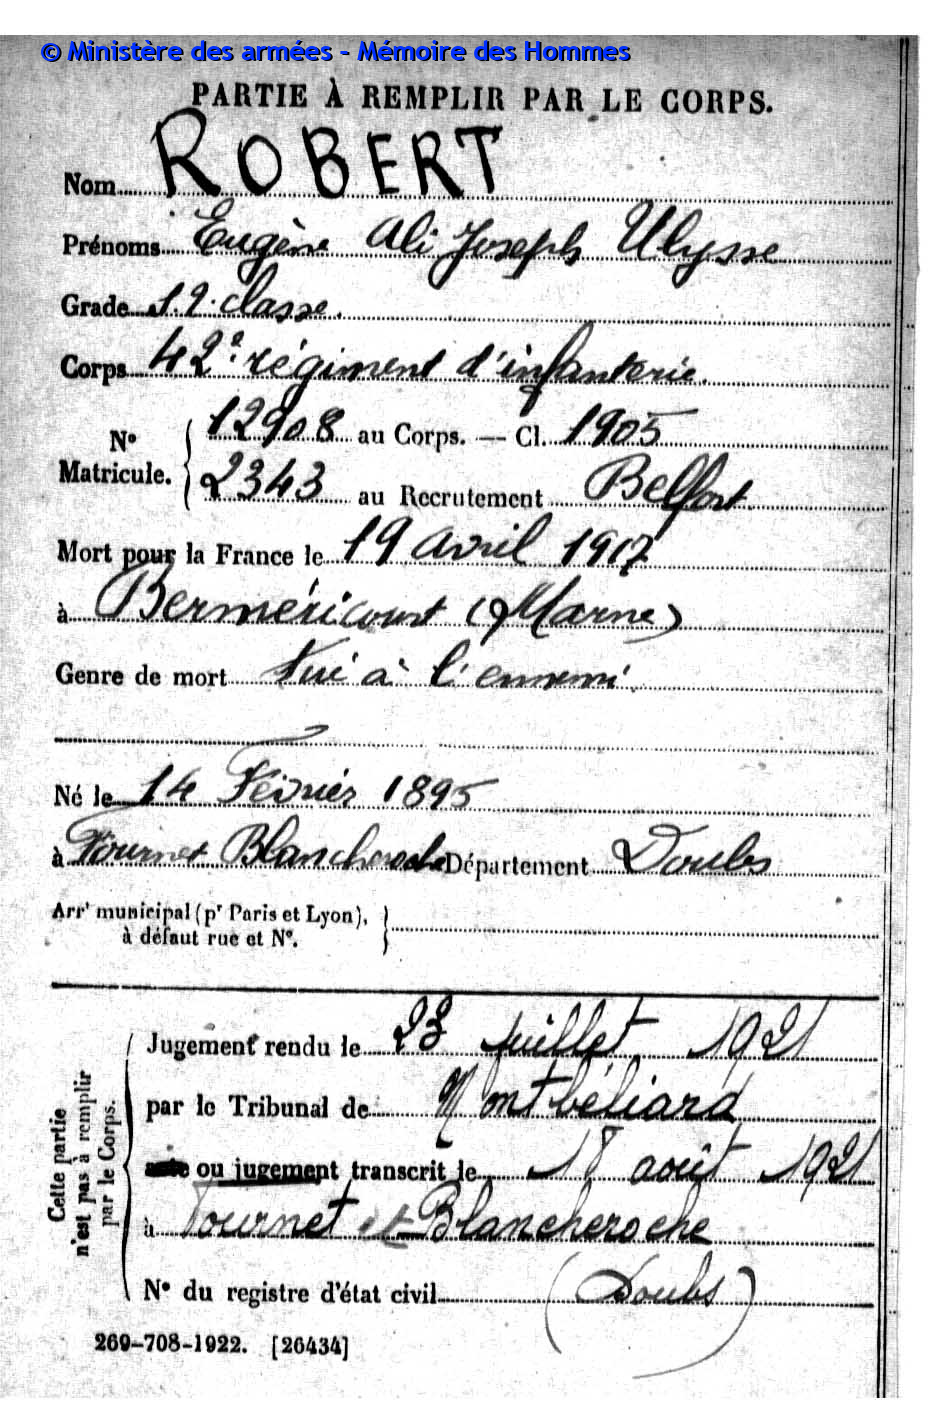 © Ministère des armées - Mémoire des Hommes
PARTIE À REMPLIR PAR LE CORPS.
Nom ROBERT
Prénoms Eugène Ali Joseph Ulysse
Grade 1.2. classe.
Corps 42e régiment d'infanterie.
N° Matricule. 12908 au Corps. — Cl. 1905
2343 au Recrutement Belfort.
Mort pour la France le 19 avril 1917
à Berméricourt (Marne)
Genre de mort Tué à l'ennemi.
Né le 14 Février 1895
à Fournet Blancheroche Département Doubs
Arrt municipal (pr Paris et Lyon),
à défaut rue et N°.
Cette partie
n'est pas à remplir
par le Corps.
Jugement rendu le 23 juillet 1921
par le Tribunal de Montbéliard
ou jugement transcrit le 18 août 1921
à Fournet et Blancheroche
N° du registre d'état civil (Doubs)
269-708-1922. [26434]